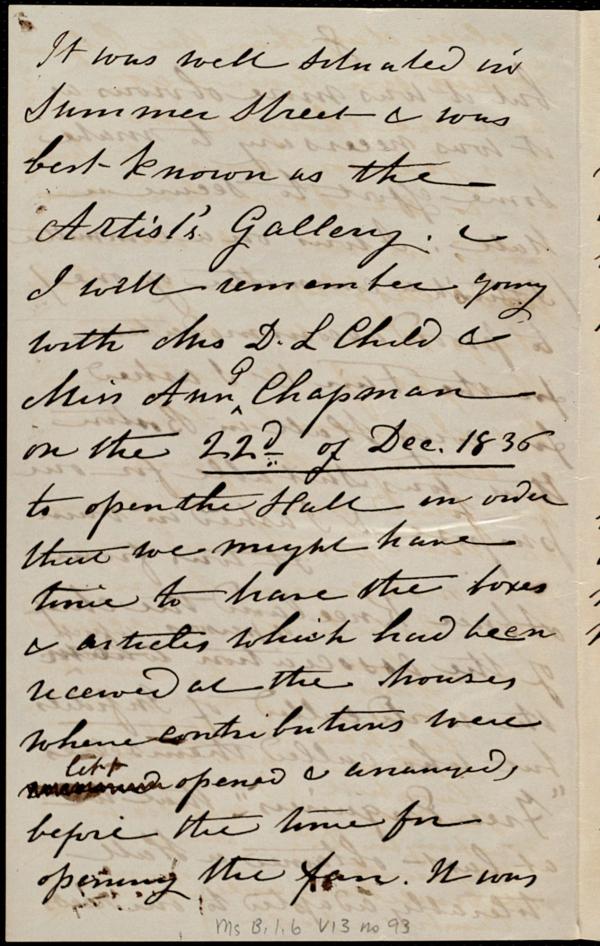 It was well situated in
Summer Street & was
best known as the
Artist's Gallery. &
I well remember going
with Mrs D. L Child &
Miss Ann G Chapman
on the 22d of Dec. 1836
to open the Hall in order
that we might have
time to have the boxes
& articles which had been
received at the houses
where contributions were
left
opened & arranged,
before the time for
opening the fair. It was
Ms B.1.6 V13 no 93